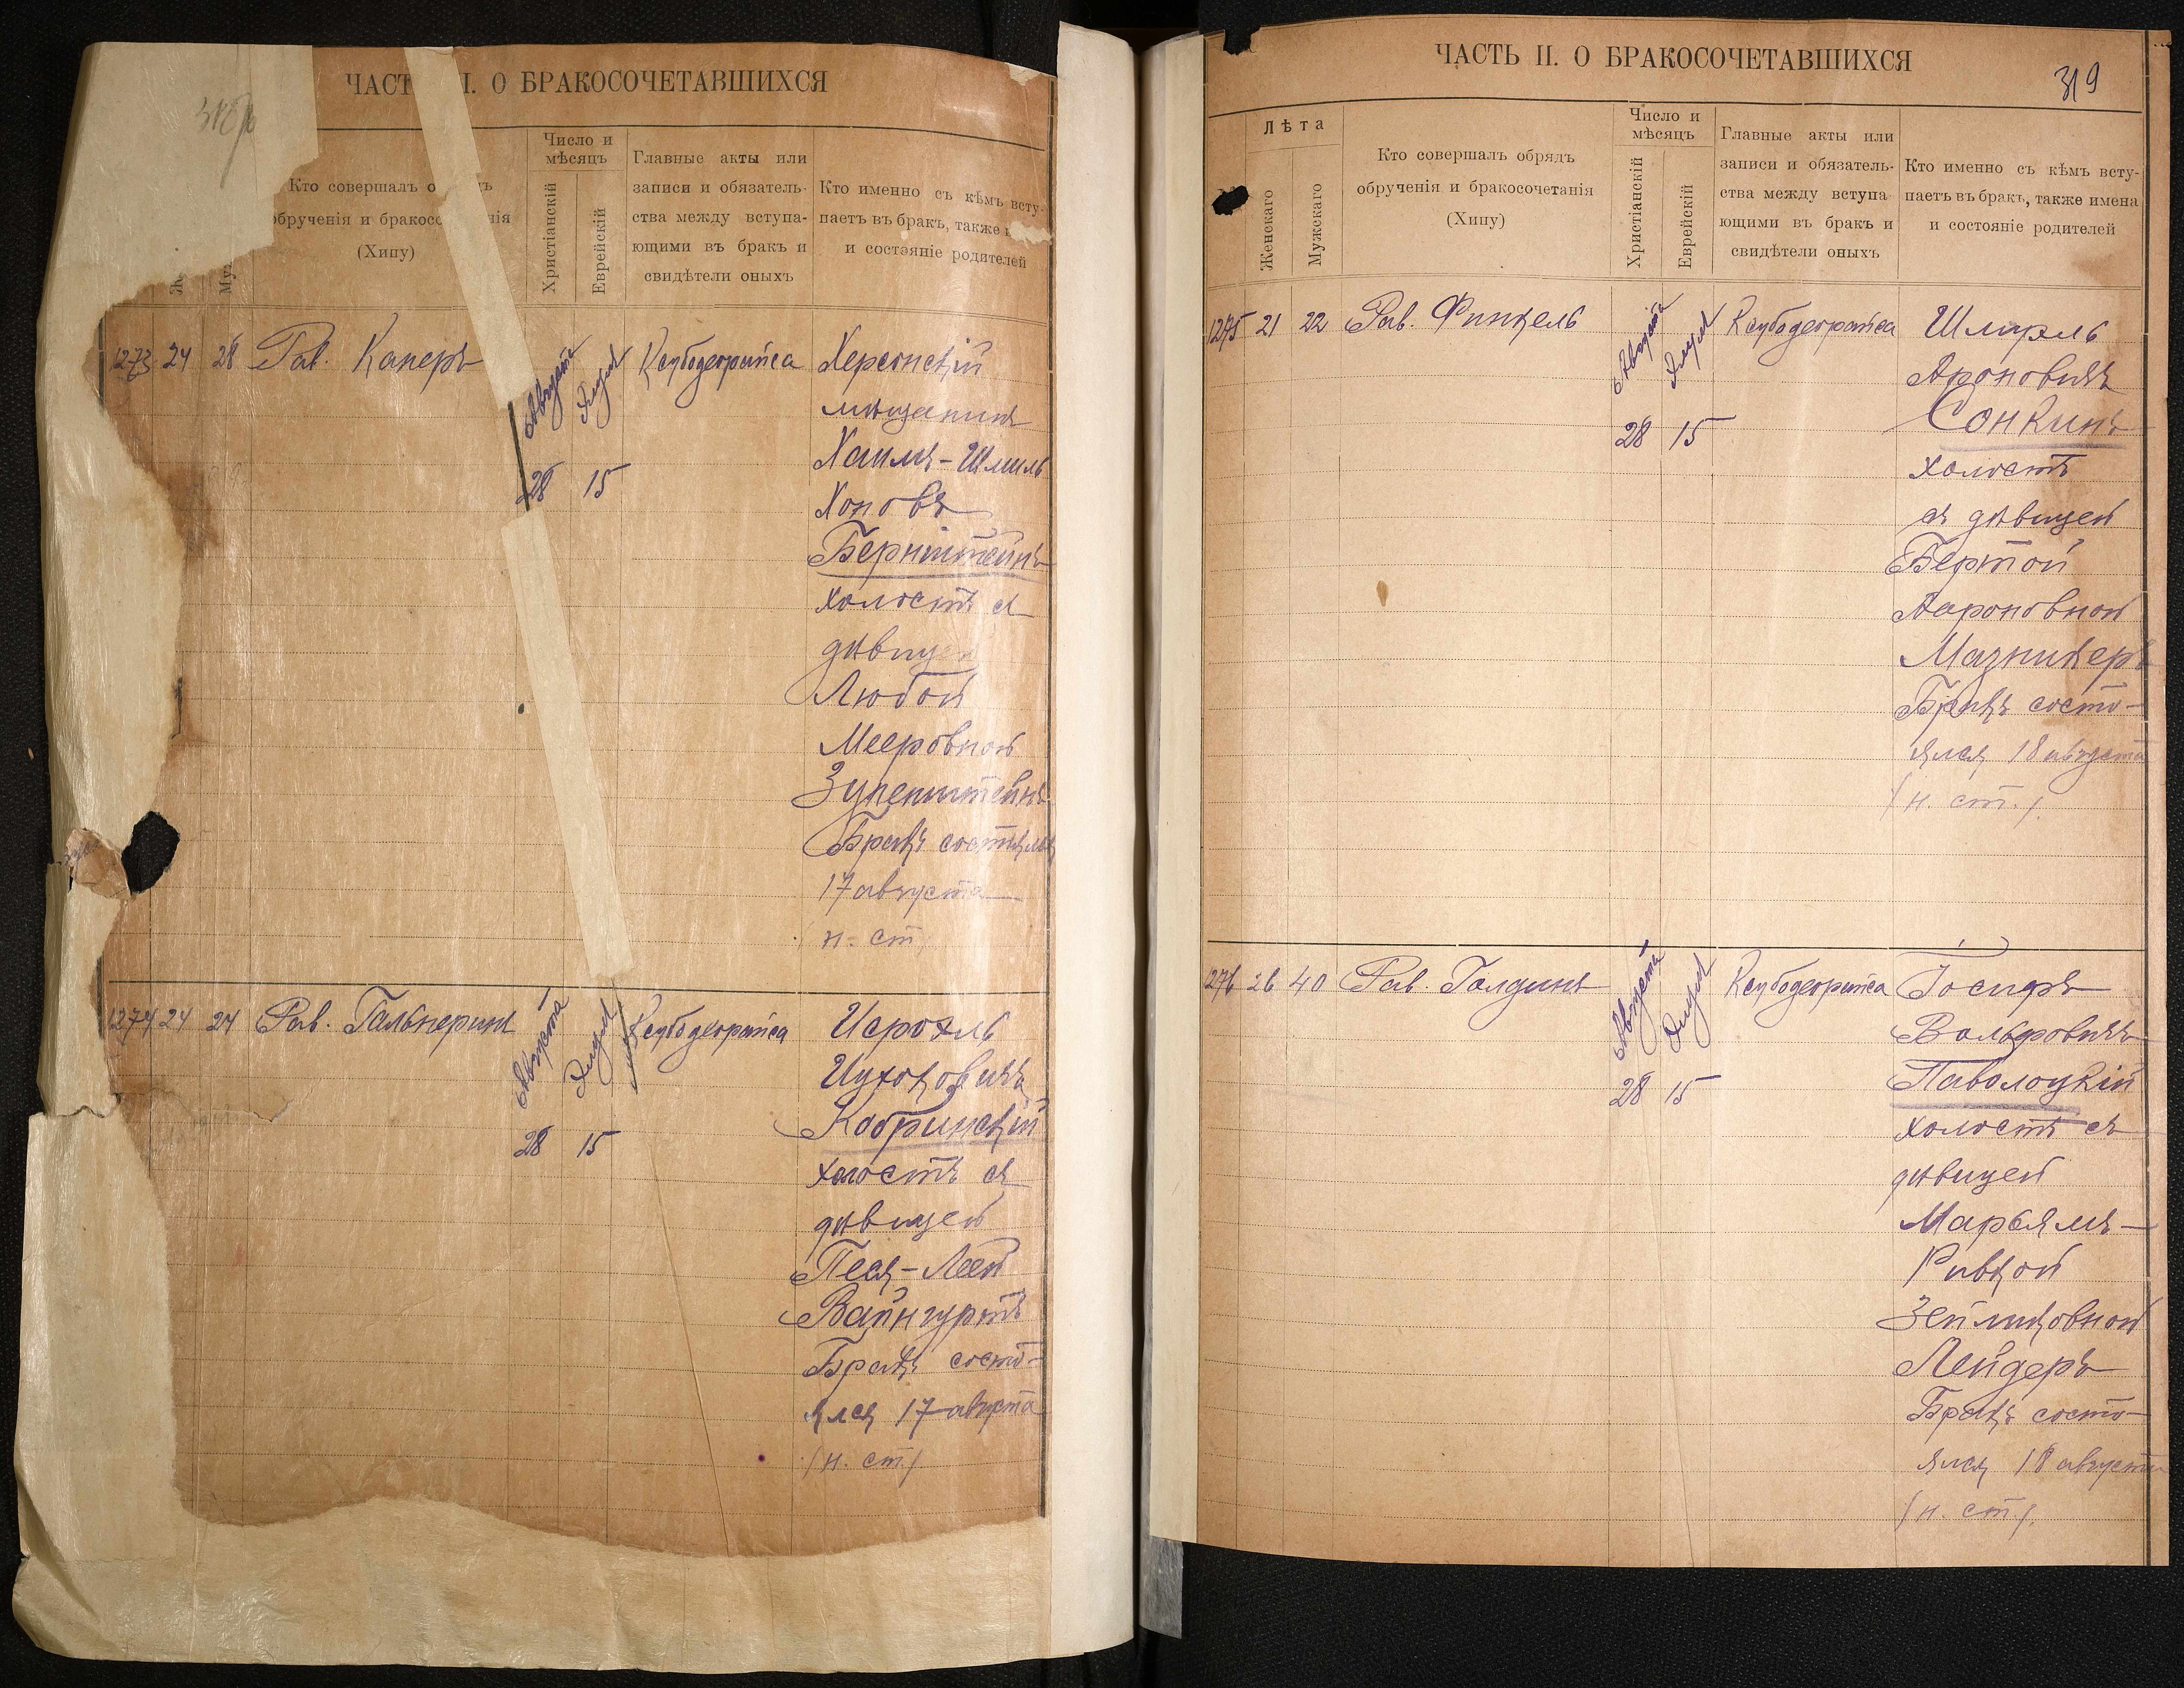 ЧАСТ I. О БРАКОСОЧЕТАВШИХСЯ
Кто совершалъ о ъ
обрученія и бракосо нія
(Хипу)
Число и
мѣсяцъ
Христіанскій
Еврейскій
Главные акты или
записи и обязатель-
ства между вступа-
ющими въ бракъ и
свидѣтели оныхъ
Кто именно съ кѣмъ всту-
паетъ въ бракъ, также
и состояніе родителей
1273 24 28 Рав. Канеръ
Августа Элула
28 15
Ксубодеорайса
Херсонскій
мѣщанинъ
Хаимъ-Шмиль
Хоновъ
Бернштейнъ
холостъ съ
дѣвицей
Любой
Мееровной
Зупенштейнъ
Бракъ состоялся
17 августа
н. ст.
1274 24 24 Рав. Гальперинъ
Августа Элула
28 15
Ксубодеорайса
Исроэль
Ицхоковичъ
Кобринскій
холостъ съ
дѣвицей
Песя-Леей
Вайнгуртъ
Бракъ состо-
ялся 17 августа
(н. ст.)
ЧАСТЬ II. О БРАКОСОЧЕТАВШИХСЯ
319
Лѣта
Женскаго
Мужскаго
Кто совершалъ обрядъ
обрученія и бракосочетанія
(Хипу)
Число и
мѣсяцъ
Христіанскій
Еврейскій
Главные акты или
записи и обязатель-
ства между вступа
ющими въ бракъ и
свидѣтели оныхъ
Кто именно съ кѣмъ всту-
паетъ въ бракъ, также имена
и состояніе родителей
1275 21 22 Рав. Финкель
Августа Элула
28 15
Ксубодеорайса
Шмарль
Ароновичъ
Сонкинъ
холостъ
съ дѣвицей
Бертой
Аароновной
Мазникеръ
Бракъ состо-
ялся 18 августа
(н. ст.).
1276 26 40 Рав. Голдинъ
Августа Элула
28 15
Ксубодеорайса
Іосифъ
Вольфовичъ
Паволоцкій
холостъ съ
дѣвицей
Марьямъ-
Ривкой
Зейликовной
Лейдеръ
Бракъ состо-
ялся 18 августа
(н. ст.).